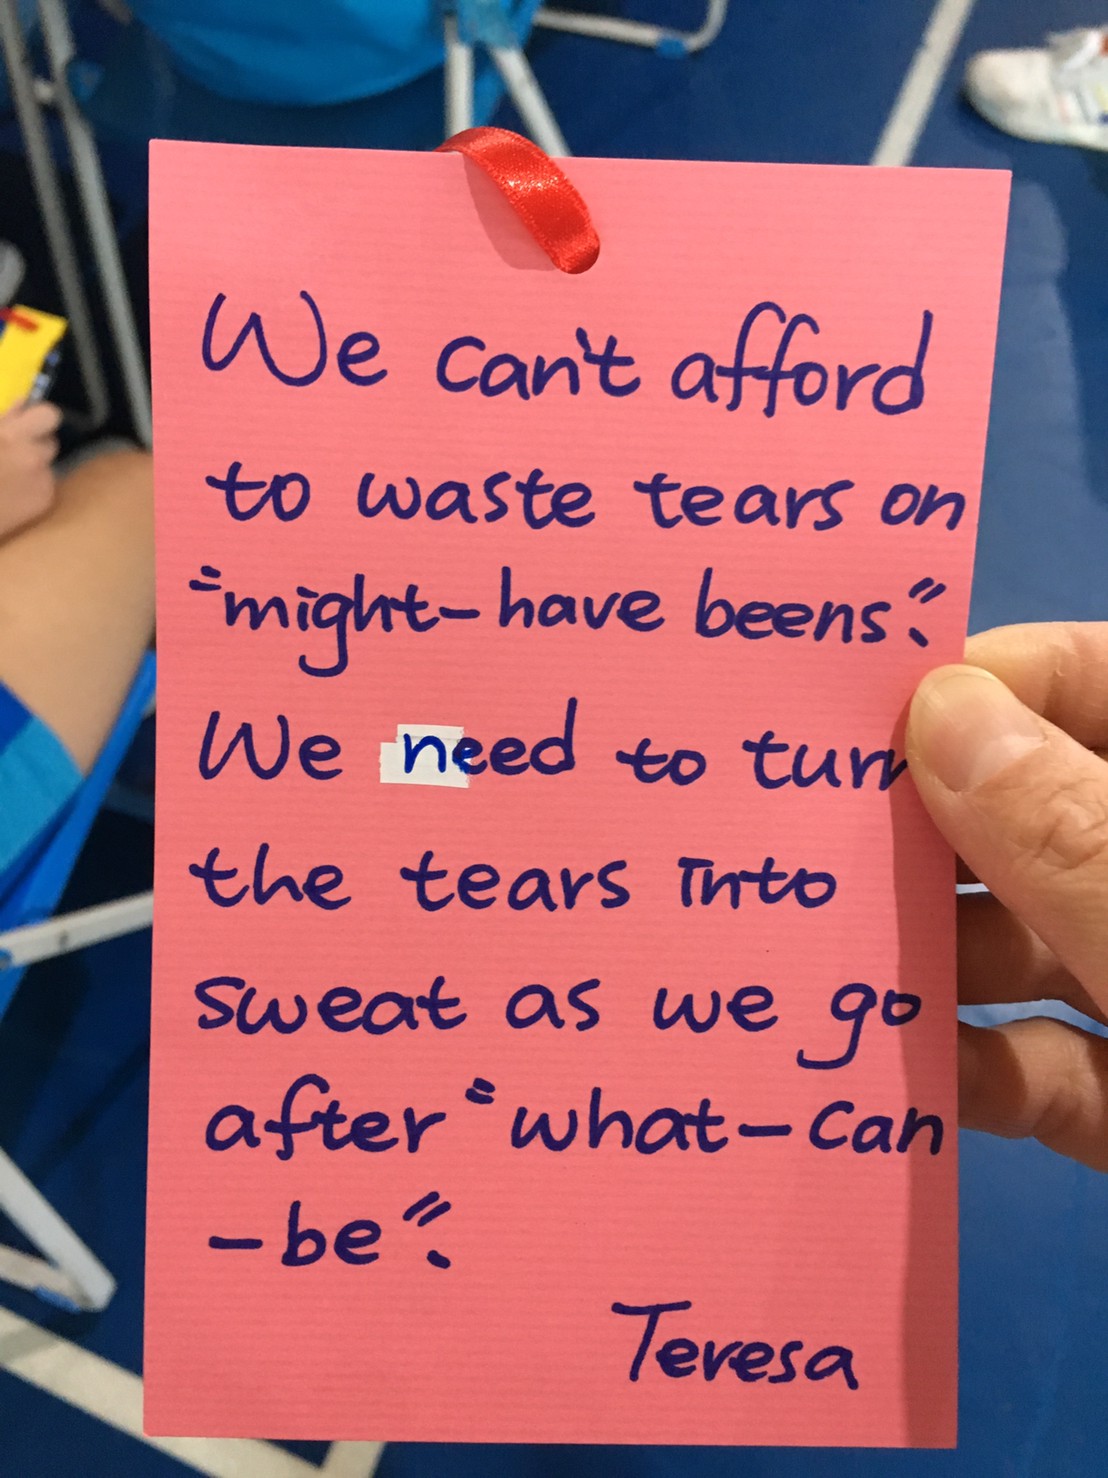 We can't afford
to waste tears on
"might-have beens".
We need to turn
the tears into
sweat as we go
after "what-can
-be".
Teresa